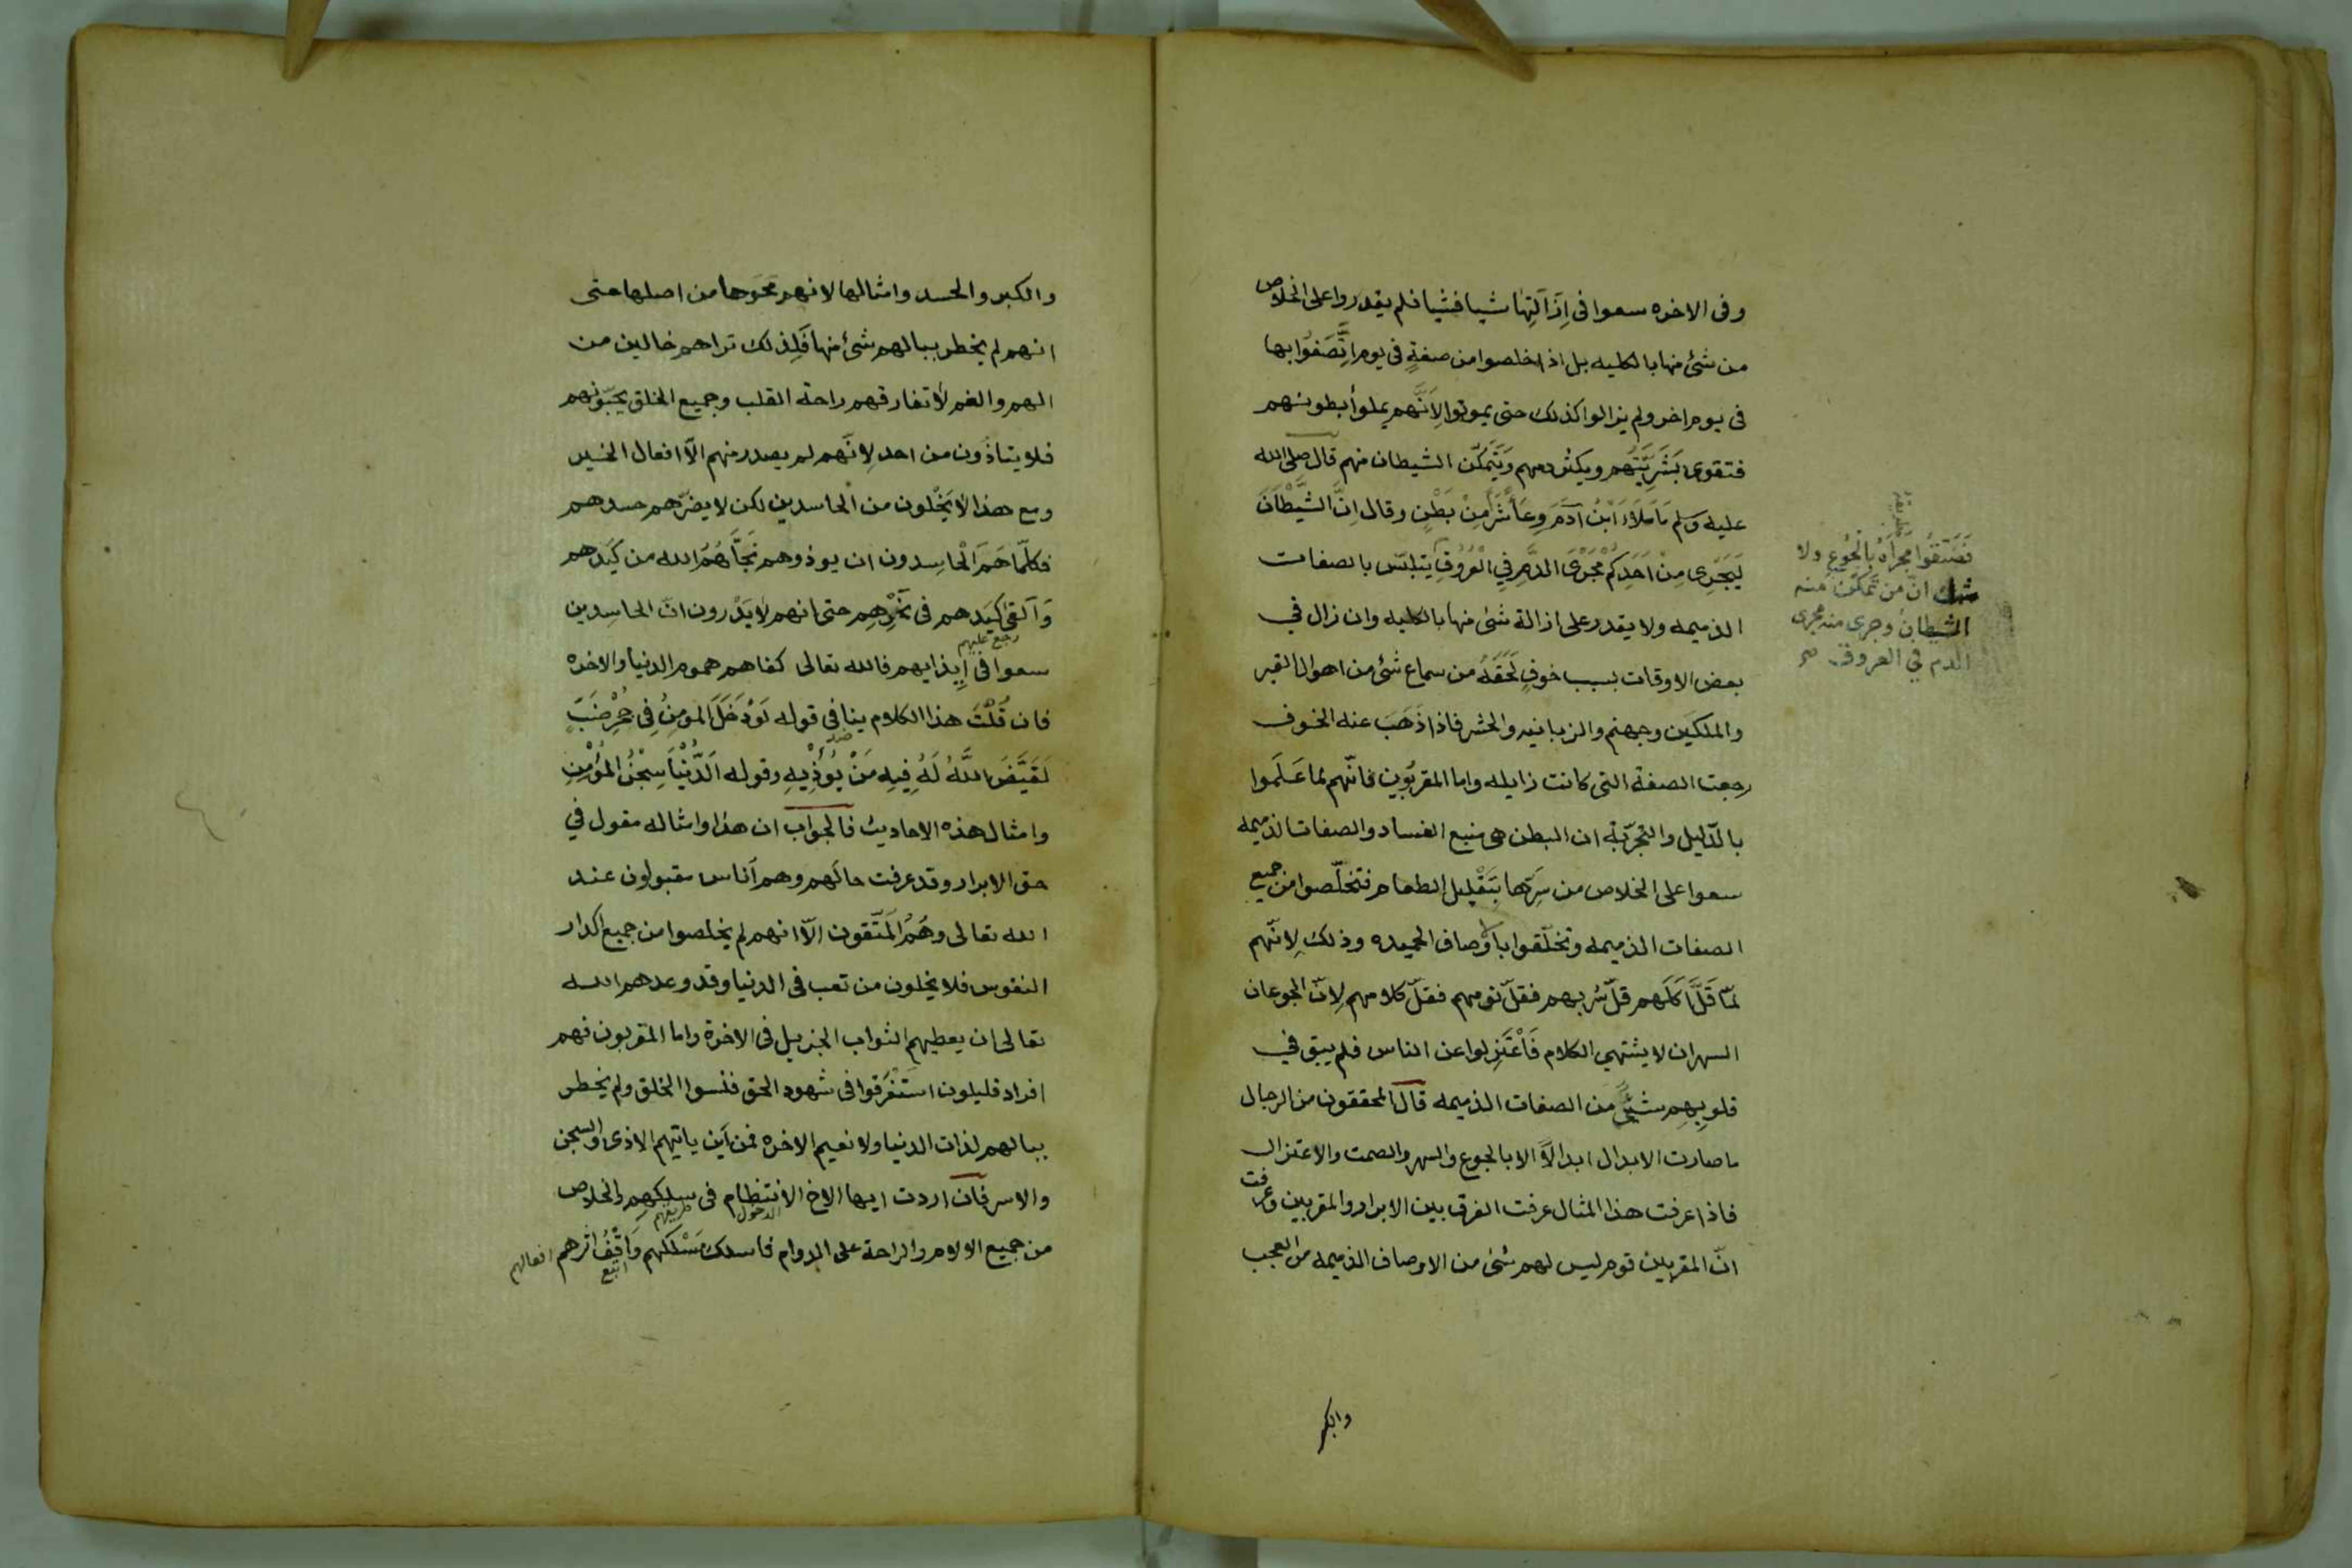 وفى الاخره سعوا فى اِزَآلَتِهَا شيا فشيا فلم يقدروا على الخلاص
من شئ منها بالكليه بل اذا خلصوا من صفةٍ فى يوم اِتَّصَفُوا بها
فى يوم اخر ولم يزالوا كذلك حتى يموتوا لِاَنَّهم يملوأ بطونهم
فتقوى بَشَرِيَّتُهم ويكثر همهم وَيَتَمَكَّن الشيطان منهم قال صلى الله
عليه وسلم مَا مَلَاءَ اَبْنُ آدَمَ وِعَاًء شَرًّا مِنْ بَطْنٍ وقال اِنَّ الشَّيْطَانَ
لَيَجْرِى مِنْ اَحَدِكُمْ مَجْرَى الدَّمِ فِي الْعُرُوقِ يتلبّس بالصفات
الذميمه ولا يقدر على ازالة شئ منها بالكليه وان زال في
بعض الاوقات بسبب خوفٍ لَحَقَهُ من سماع شئ من اهوال القبر
والملكَين وجهنم والزبانيه والحشر فاذا ذَهَبَ عنه الخوف
رجعت الصفة التى كانت زايله واما المقربُوين فانّهم لما عَلَموا
بالدّليل والتجرّبة ان البطن هى منبع الفساد والصفات الذميمه
سعوا على الخلاص من شَرِّها بِتَقْليل الطعام فتخلّصوا من جميع
الصفات الذميمه وتخلّقوا بالاوصاف الحميده وذلك لِانّهم
لمّا قَلَّ اَكَلَهم قلّ شربهم فقلّ نومهم فقلّ كلامهم لِانّ الجوعان
السهران لا يشتهى الكلام فَاْعْتَزلوا عن الناس فلم يبق في
قلوبِهِم شيئٌ من الصفات الذميمه قال المحققون من الرجال
ما صارت الابدال ابدالاً الا بالجوع والسهر والصمت والاعتزال
فاذا عرفت هذا المثال عرفت الفرق بين الابرار والمقربين وعرفت
انّ المقربين قوم ليس لهم شئ من الاوصاف الذميمه من العجب
فَضَيِّقُوا مَجْرَاهُ بِالْجُوعِ ولا
شك انّ من تَمَكَّنَ منه
الشيطان وجرى منه مجرى
الدم في العروق صح
والكبر
والكبر والحسد وامثالها لانهم مَحَوها من اصلها حتى
انهم لم يخطر ببالهم شئ منها فَلِذلك تراهم خالين من
الهم والغم لا تفارقهم راحة القلب وجميع الخلق يحبّونهم
فلا يتاذّون من احد لِانّهم لم يصدر منهم الّا افعال الخير
ومع هذا لا يَخْلون من الحاسدين لكن لا يضرّهم حسدهم
فكلّما هَمَ الْحاسِدون ان يوذوهم نَجَّاهُمُ الله من كَيَدهم
وَآلقىٰ كَيَدهم فى نَحْرِهِم حتى انهم لَا يَدْرون انّ الحاسِدين
رجع عليهم
سعوا فى اِيذايهم فالله تعالى كفاهم هموم الدنيا والاخره
فان قُلْتَ هذا الكلام ينافى قوله لَوْ دَخَلَ المومِنُ فِى جُحْرِ ضَبّ
لَقَيَّضَ اللَّهُ لَهُ فِيهِ مَنْ يُوْذِيهِ وقوله اَلدُّنْيَا سِجْنُ المُوْمِنِ
وامثال هذه الاحاديث فالجواب ان هذا وامثاله مقول في
حق الابرار وقد عرفت حالَهم وهم اُناس مقبولون عند
الله تعالى وهُمُ المَتّقون الّا انهم لم يخلصوا من جميع اكدار
النفوس فلا يخلون من تعب فى الدنيا وقد وعدهم الله
تعالى ان يعطيهم الثواب الجزيل فى الاخرة واما المقربون فهم
افراد قليلون استَغْرَقوا فى شهود الحق فنسوا الخلق ولم يخطر
ببالهم لذات الدنيا ولا نعيم الاخره فمن اَين ياتيهم الاذى والسجن
والاسر فان اردت ايها الاخ الْاَنتظام فى سِلِكهِم والخلاص
الدخول طريقهم
من جميع الالام والراحة على الدوام فاسلك مَسْلَكَهم وَاقْفُ اثرهم
اتبع افعالهم